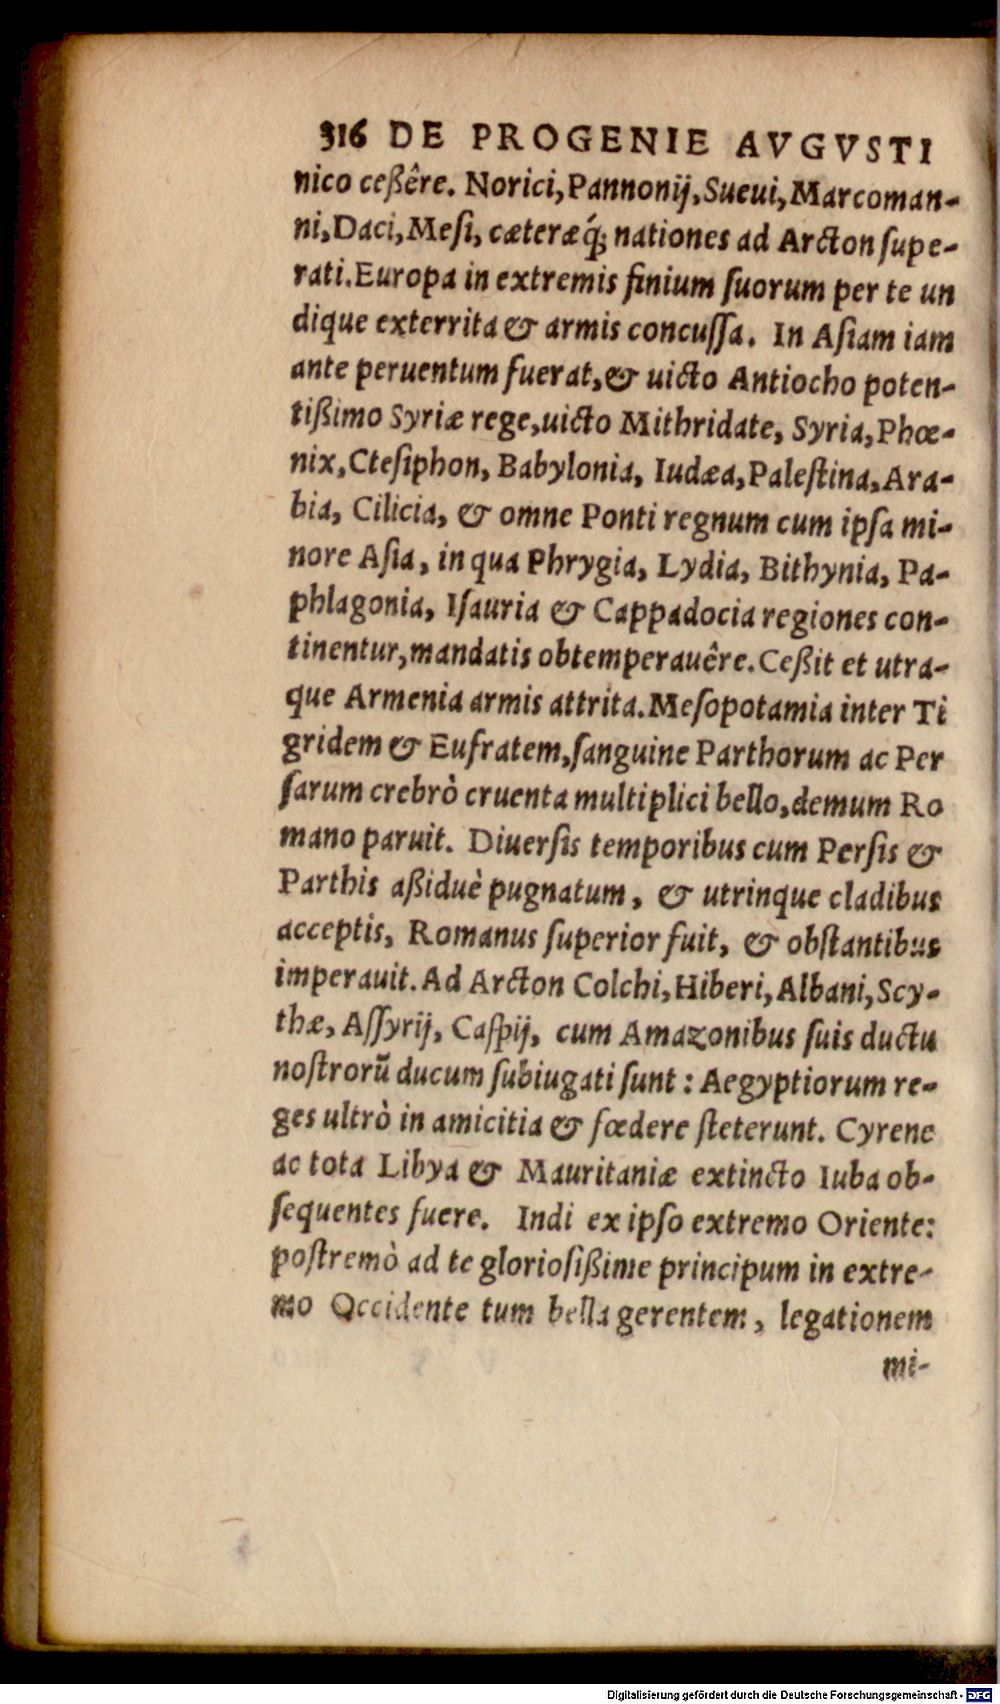 316 DE PROGENIE AVGVSTI
nico ceßêre. Norici, Pannonij, Sueui, Marcoman-
ni, Daci, Mesi, cæteræq́; nationes ad Arcton supe-
rati. Europa in extremis finium suorum per te un
dique exterrita & armis concussa. In Asiam iam
ante peruentum fuerat, & uicto Antiocho poten-
tißimo Syriæ rege, uicto Mithridate, Syria, Phœ-
nix, Ctesiphon, Babylonia, Iudæa, Palestina, Ara-
bia, Cilicia, & omne Ponti regnum cum ipsa mi-
nore Asia, in qua Phrygia, Lydia, Bithynia, Pa-
phlagonia, Isauria & Cappadocia regiones con-
tinentur, mandatis obtemperauêre. Ceßit et utra-
que Armenia armis attrita. Mesopotamia inter Ti
gridem & Eufratem, sanguine Parthorum ac Per
sarum crebrò cruenta multiplici bello, demum Ro
mano paruit. Diuersis temporibus cum Persis &
Parthis aßiduè pugnatum, & utrinque cladibus
acceptis, Romanus superior fuit, & obstantibus
imperauit. Ad Arcton Colchi, Hiberi, Albani, Scy-
thæ, Assyrij, Caspij, cum Amazonibus suis ductu
nostrorū ducum subiugati sunt: Aegyptiorum re-
ges ultrò in amicitia & fœdere steterunt. Cyrene
ac tota Libya & Mauritaniæ extincto Iuba ob-
sequentes fuere. Indi ex ipso extremo Oriente:
postremò ad te gloriosißime principum in extre-
mo Occidente tum bella gerentem, legationem
mi-
Digitalisierung gefördert durch die Deutsche Forschungsgemeinschaft - DFG